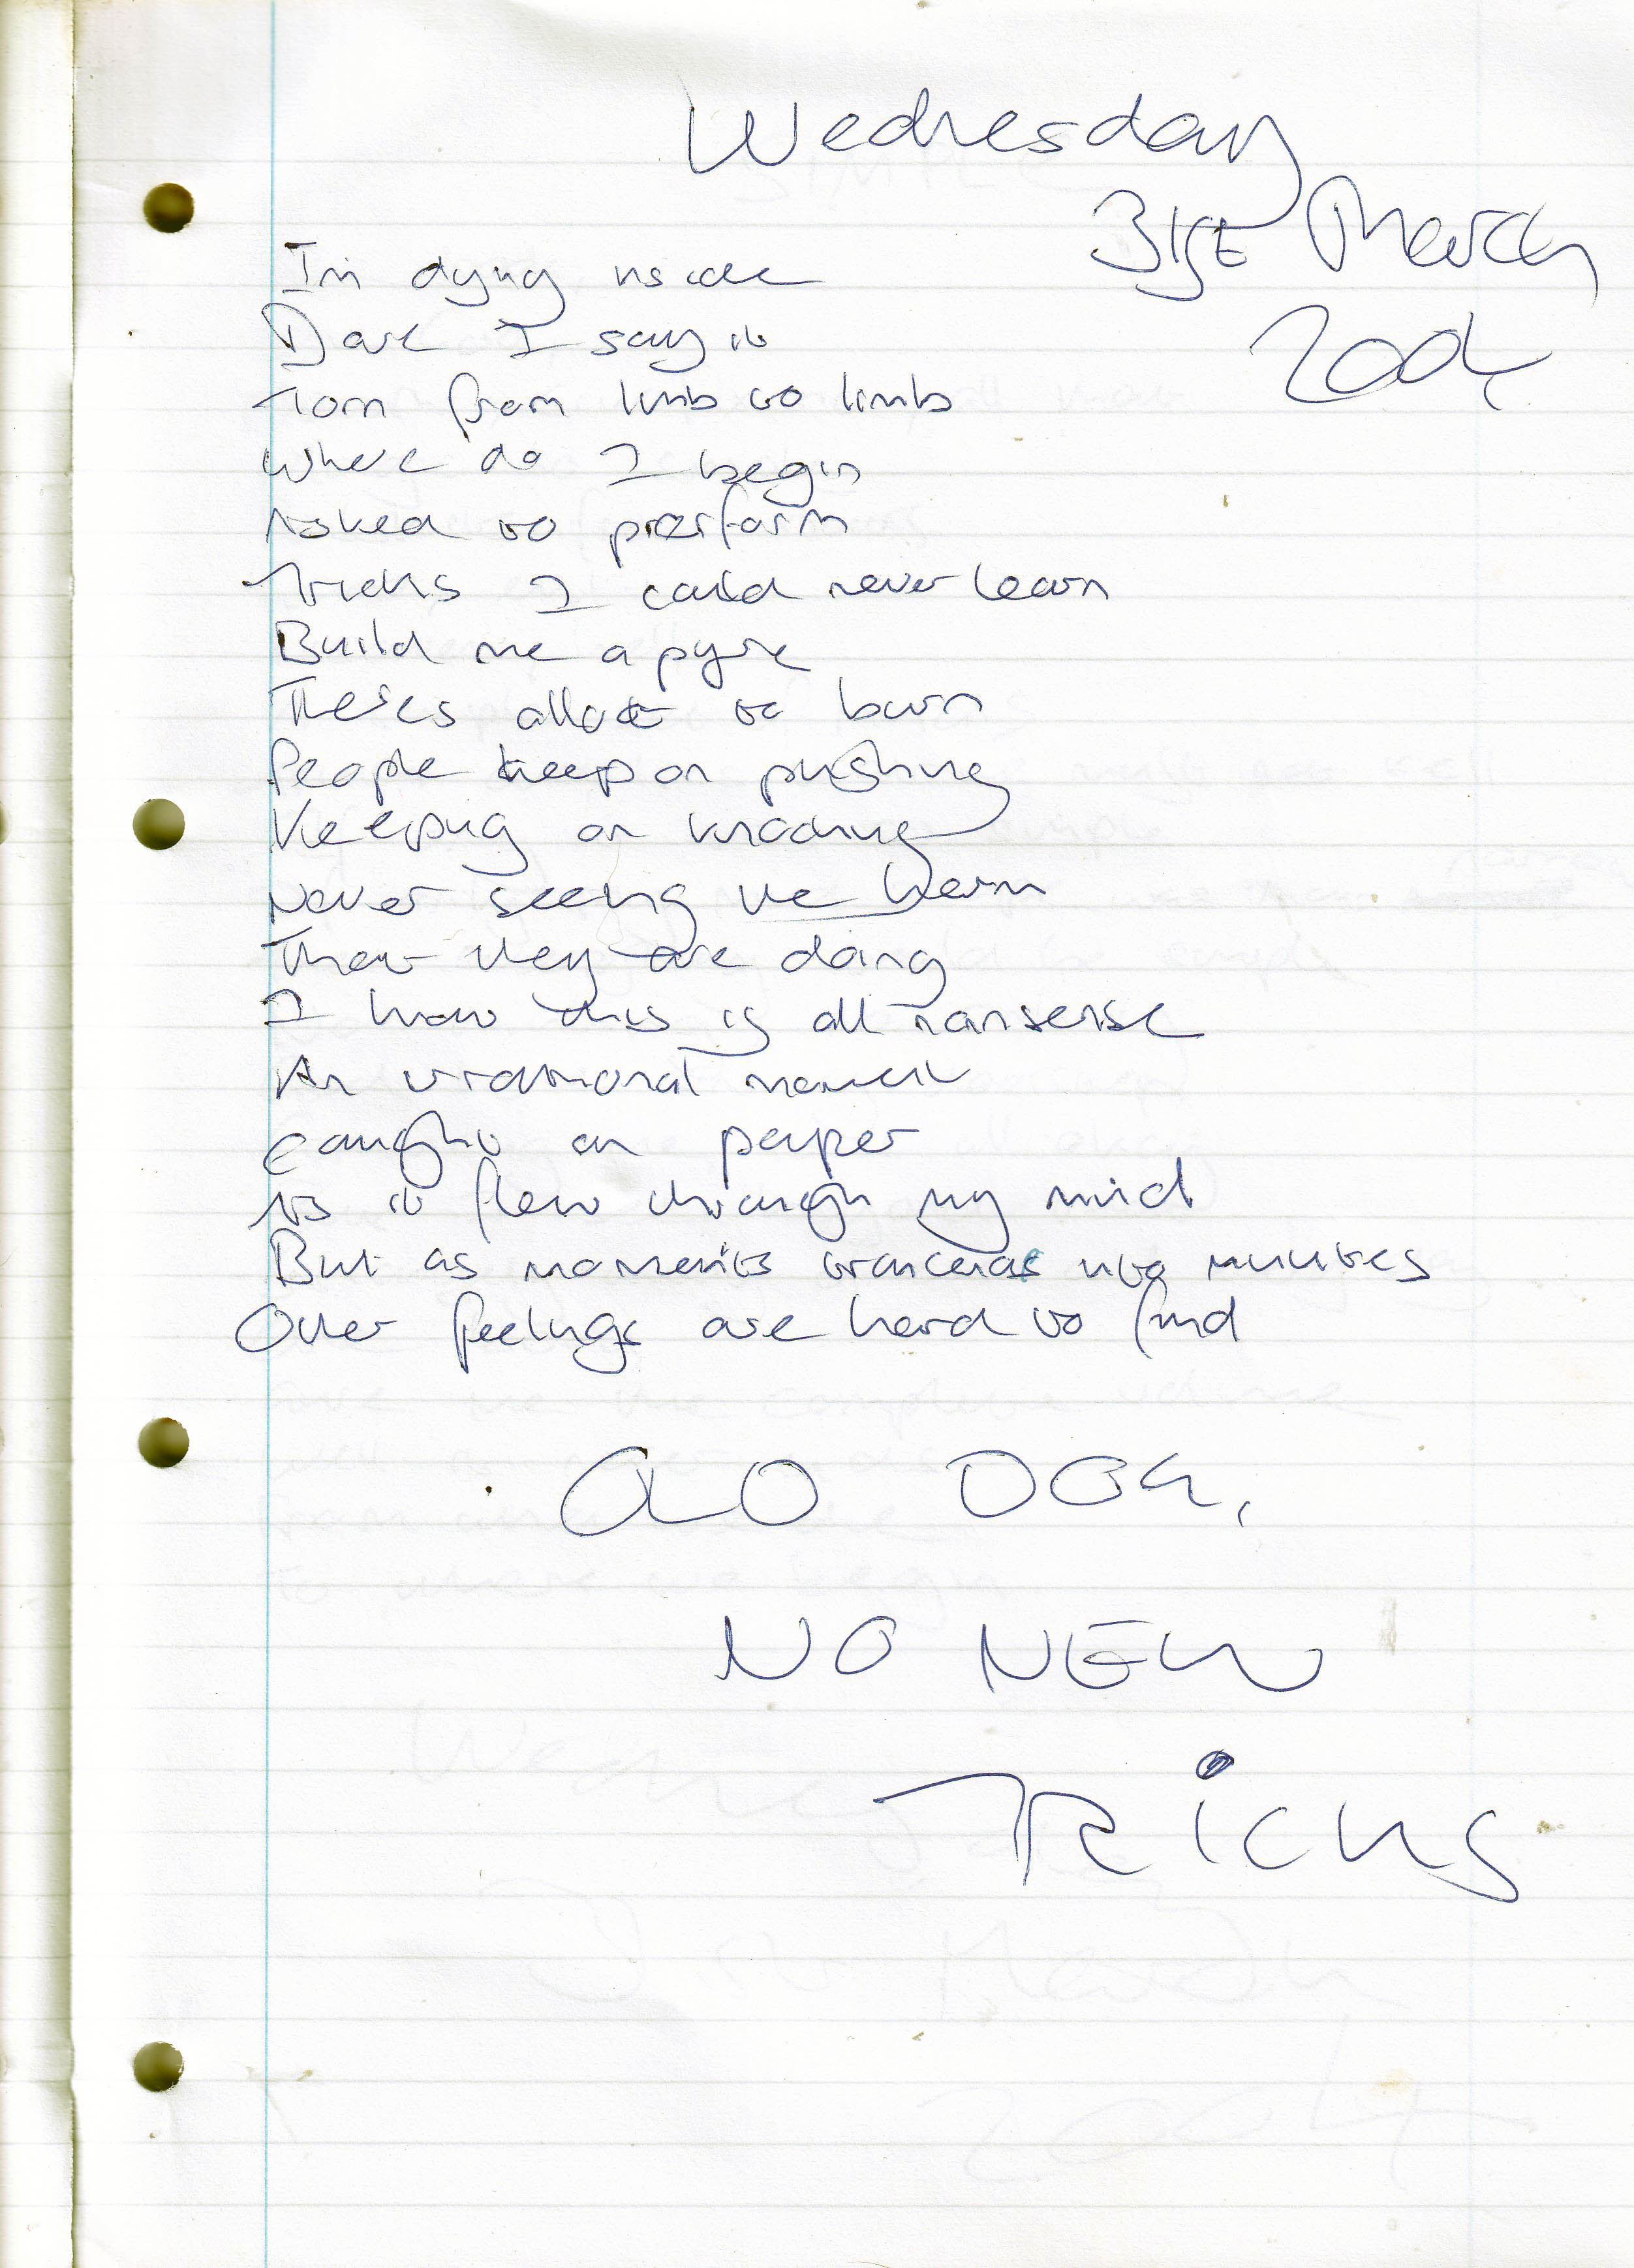 Wednesday
31st March
2004
I'm dying inside
Dare I say it
Torn from limb to limb
Where do I begin
Asked to perform
Tricks I could never learn
Build me a pyre
Theres allot to burn
People keep on pushing
Keeping on
Never seeing the harm
That they are doing
I know this is all nonsense
An irrational moment
Caught on paper
As it flew through my mind
But as moments into minutes
Other feelings are hard to find
OLD DOG,
NO NEW
TRicks